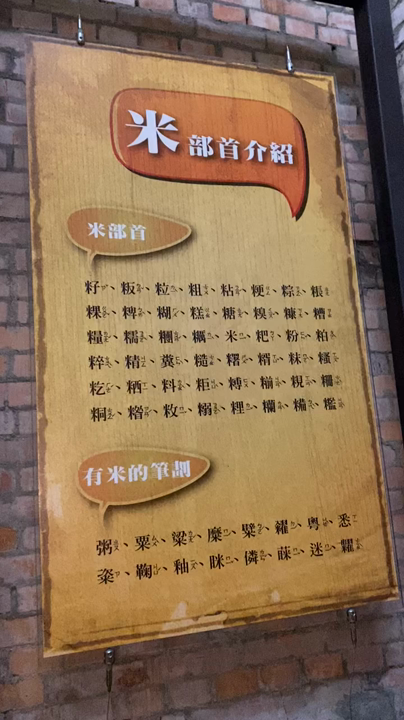 米部首介紹
米部首
籽、粄、粒、粗、粘、粳、粽、粻
粿、粺、糊、糕、糖、糗、糠、糟
糧、糯、糰、糲、米、粑、粉、粕
粹、精、糞、糙、糈、粖、糔
籺、粞、料、粔、糐、糋、粯、粣
粡、粩、敉、糑、粴、糷、糒
有米的筆劃
粥、粟、粱、糜、糪、糴、粵、悉
粢、鞠、釉、眯、燐、蔝、迷、糶